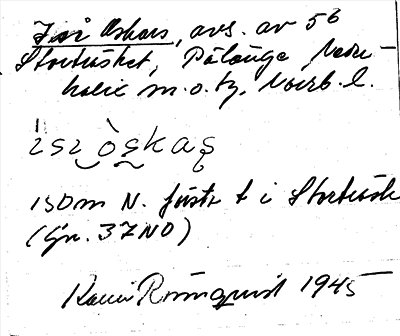 Isi Oskars, avs. av 5⁶
Storträsket, Pålänge, Neder-
kalix m.o.tg., Norrb. l.
isi òskas
150m N. första t i Storträsk
(Gn. 37NO)
Karin Rönnquist 1945